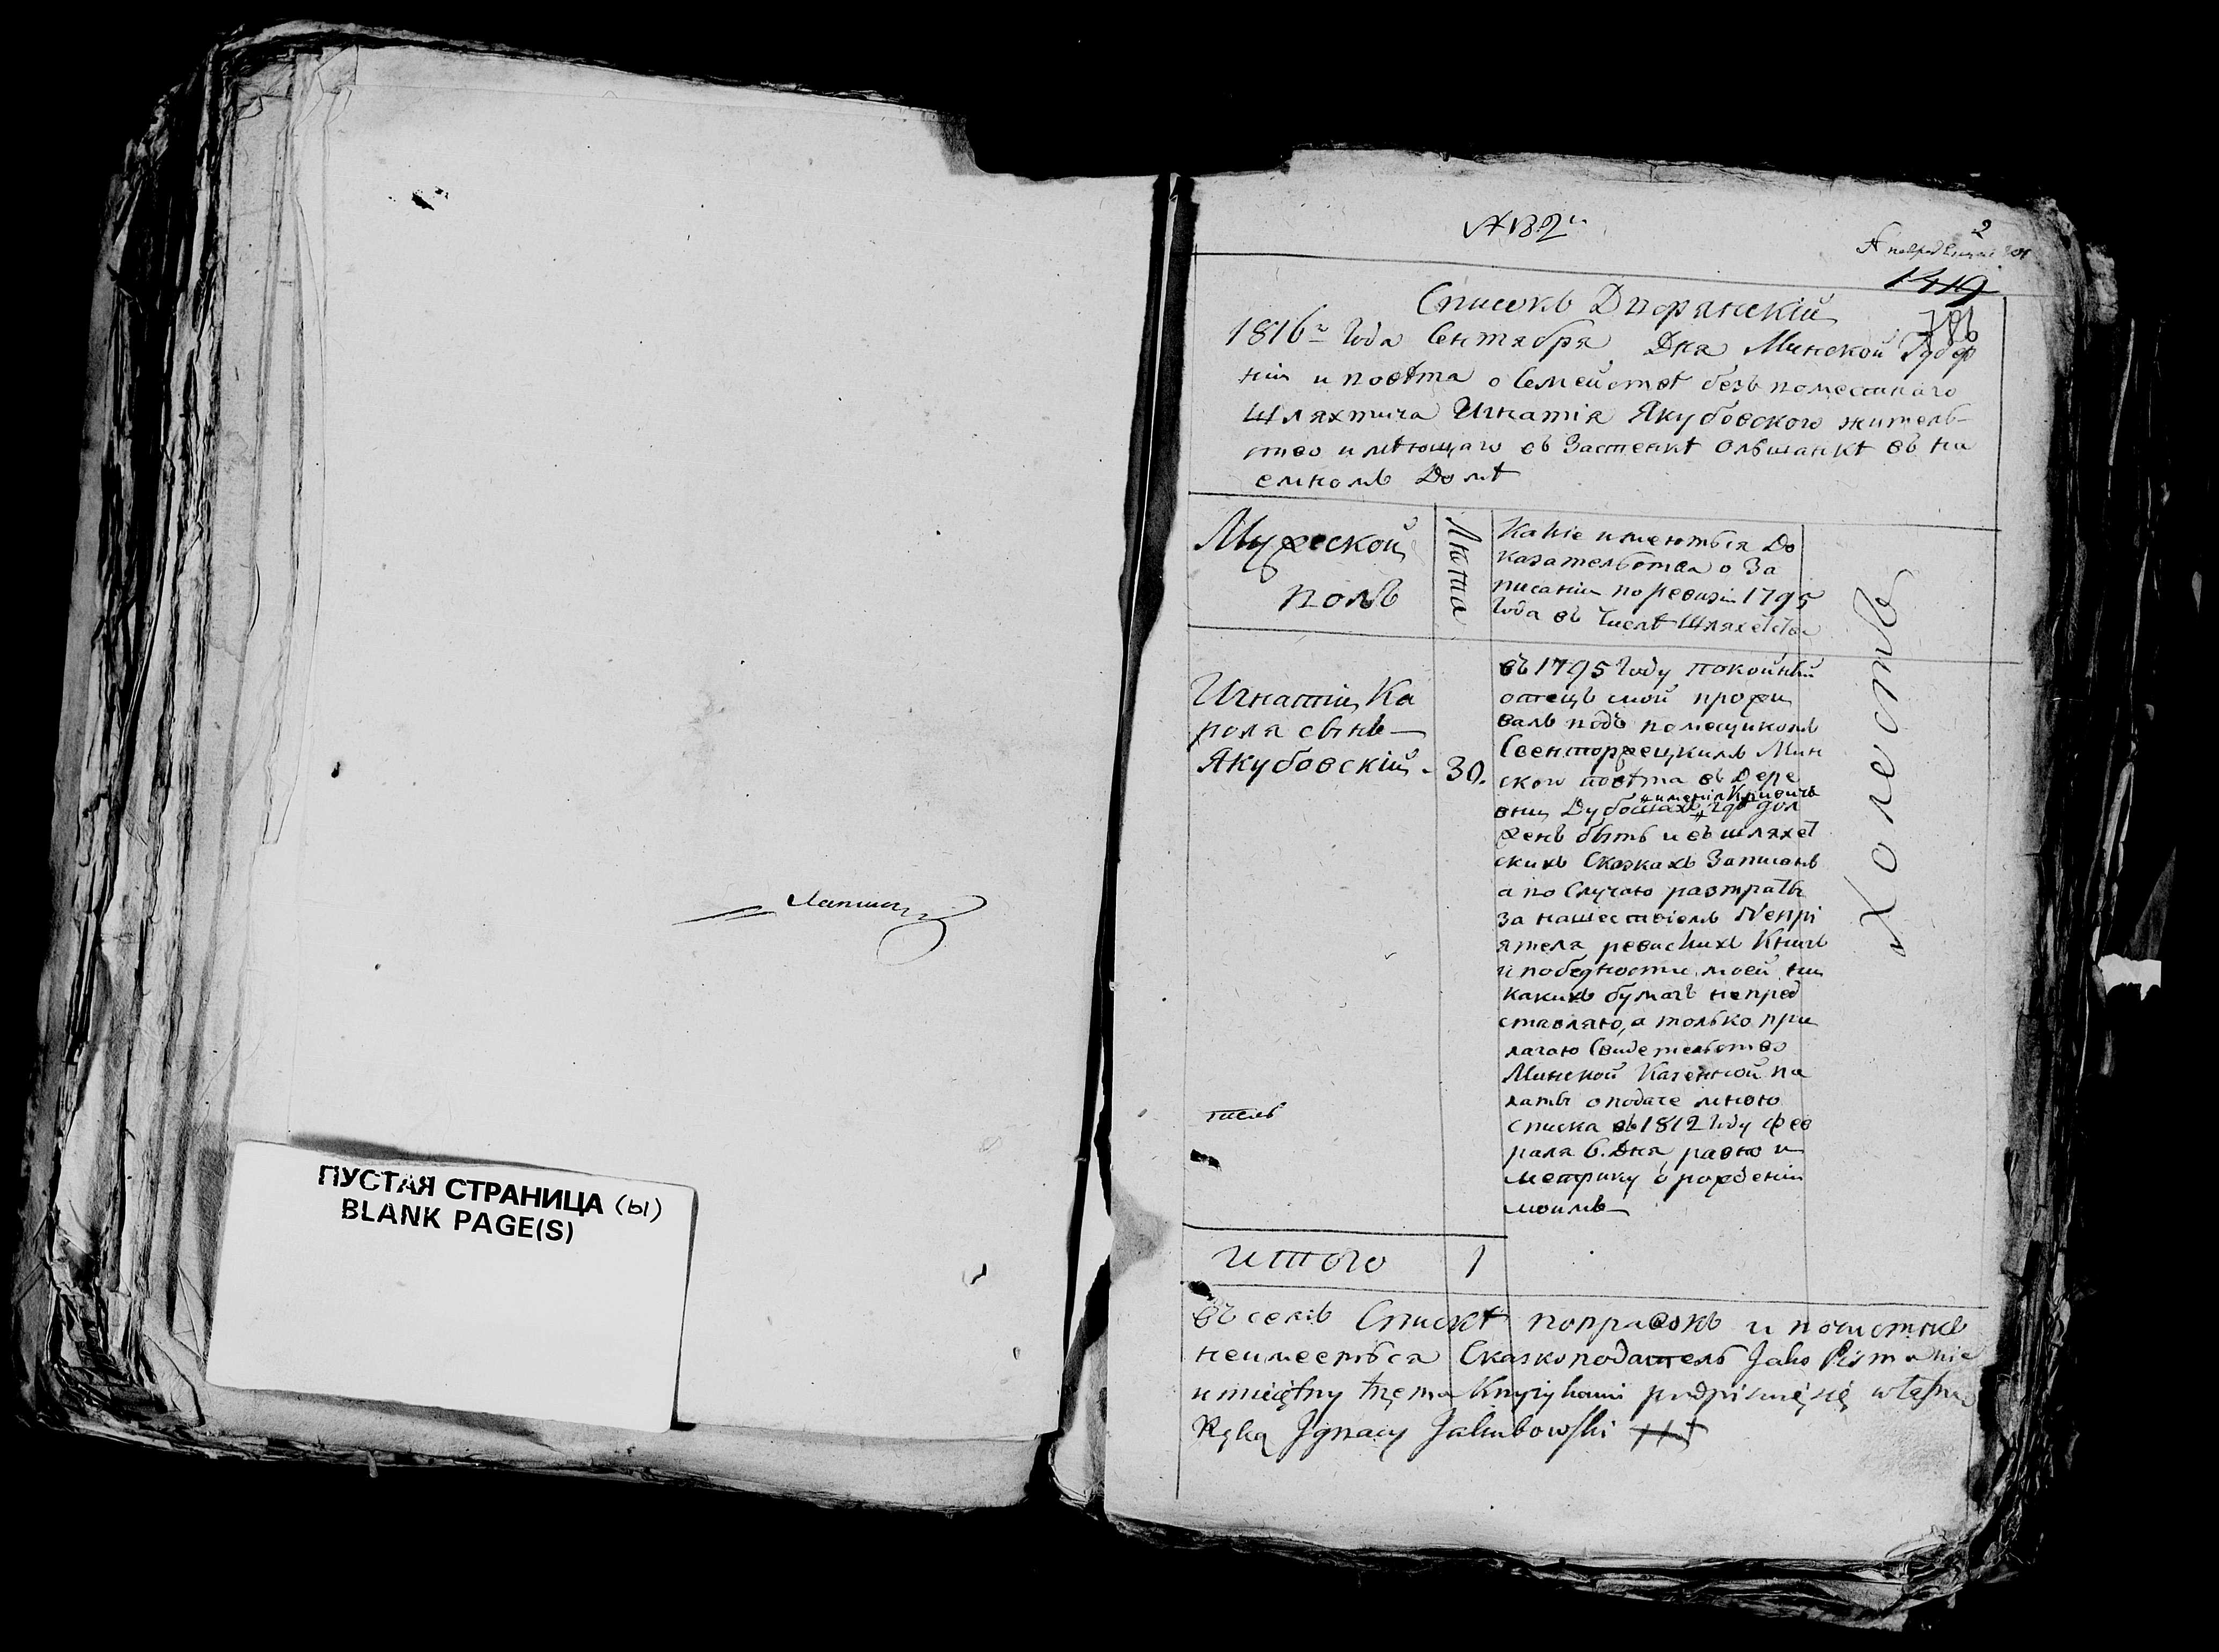 Лапицкій
ПУСТАЯ СТРАНИЦА (Ы)
BLANK PAGE(S)
№ 182й
2
1419
786
Списокъ Дворянскій
1816го Года Сентября Дня Минской Губер
ніи и повѣта о Семействѣ безъ помесснаго
Шляхтича Игнатія Якубовского житель-
ство имѣющаго въ Застенкѣ Ольшанкѣ въ на
емномъ Домѣ
Мужеской
полъ
Лѣта
Какіе имеютъся До
казательства о За
писаніи по ревизіи 1795
Года въ Числѣ Шляхетства
Холостъ
Игнатій Ка
роля сынъ
Якубовскій
30.
въ 1795 Году покойный
отецъ мой прожи
валъ подъ помещикомъ
Свенторжецкимъ Мин
ской повѣта въ Дере
имѣнія Кривичь
вни Дубошахъ, где дол
женъ быть и въ шляхет
скихъ Сказкахъ Записанъ
а по Случаю растраты
За нашествіемъ Непрі
ятеля ревискихъ Книгъ
и по бедности моей ни
какихъ бумагъ непред
ставляю, а только при
лагаю Свидетельство
Минской Казенной па
латы о подаче мною
списка въ 1812 Году Фев
раля 6. Дня, равно и
метрику о рожденіи
моимъ
тель
итого
1
Въ семъ Спискѣ поправокъ и почистокъ
неимеетъся Сказкоподатель Jako Pisma nie
umieiętny trzema Krzyzykami podpisuię się własną
Ręką Jgnacy Jakubowski +++